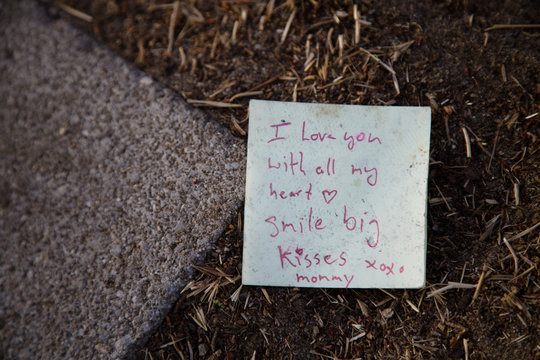 I Love you
with all my
heart ♡
smile big
kisses xoxo
mommy